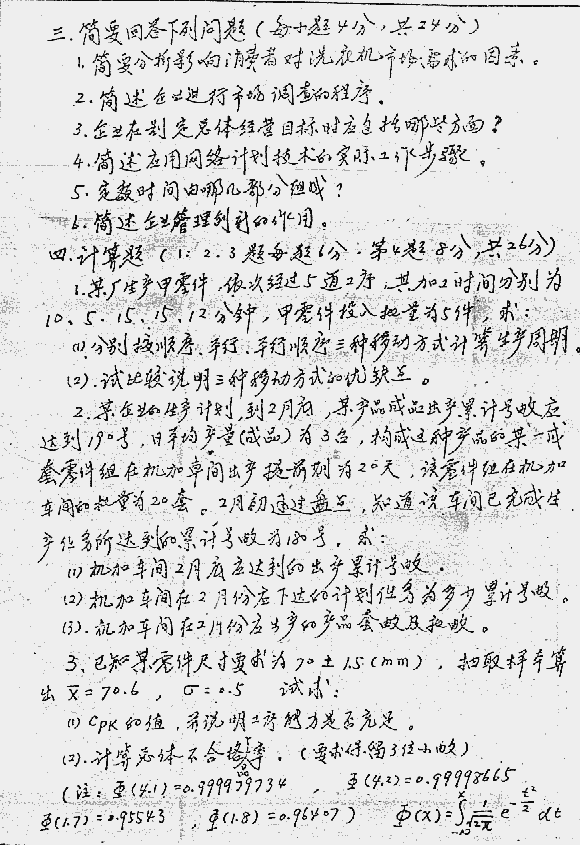 三.简要回答下列问题(每小题4分,共24分)
1.简要分析影响消费者对洗衣机市场需求的因素。
2.简述企业进行市场调查的程序。
3.企业在制定总体经营目标时应包括哪些方面?
4.简述应用网络计划技术的实际工作步骤。
5.定额时间由哪几部分组成?
6.简述企业管理到到的作用。
四.计算题(1.2.3题每题6分.第4题8分,共26分)
1.某厂生产甲零件,依次经过5道工序,其加工时间分别为
10、5、15、15、12分钟,甲零件投入批量为5件,求:
(1)分别按顺序、平行、平行顺序三种移动方式计算生产周期。
(2).试比较说明三种移动方式的优缺点。
2.某企业的生产计划,到2月底,某产品成品出产累计号数应
达到190号,日平均产量(成品)为3台,构成这种产品的某一成
套零件组在机加车间出产提前期为20天,该零件组在机加
车间的批量为20套。2月初通过盘点,知道该车间已完成生
产任务所达到的累计号数为180号。求:
(1)机加车间2月底应达到的出产累计号数.
(2)机加车间在2月份应下达的计划任务为多少累计号数。
(3).机加车间在2月份应出产的产品套数及批数。
3、已知某零件尺寸要求为70±1.5(mm),抽取样本算
出 x̄=70.6,σ=0.5 试求:
(1)CPK的值,并说明工序能力是否充足。
(2).计算总体不合格品率.(要求保留3位小数)
(注:Φ(4.1)=0.999979734 , Φ(4.2)=0.99998665
Φ(1.7)=0.95543 ,Φ(1.8)=0.96407) Φ(x)=∫_{-∞}^{x} 1/√2π e^{-t²/2} dt